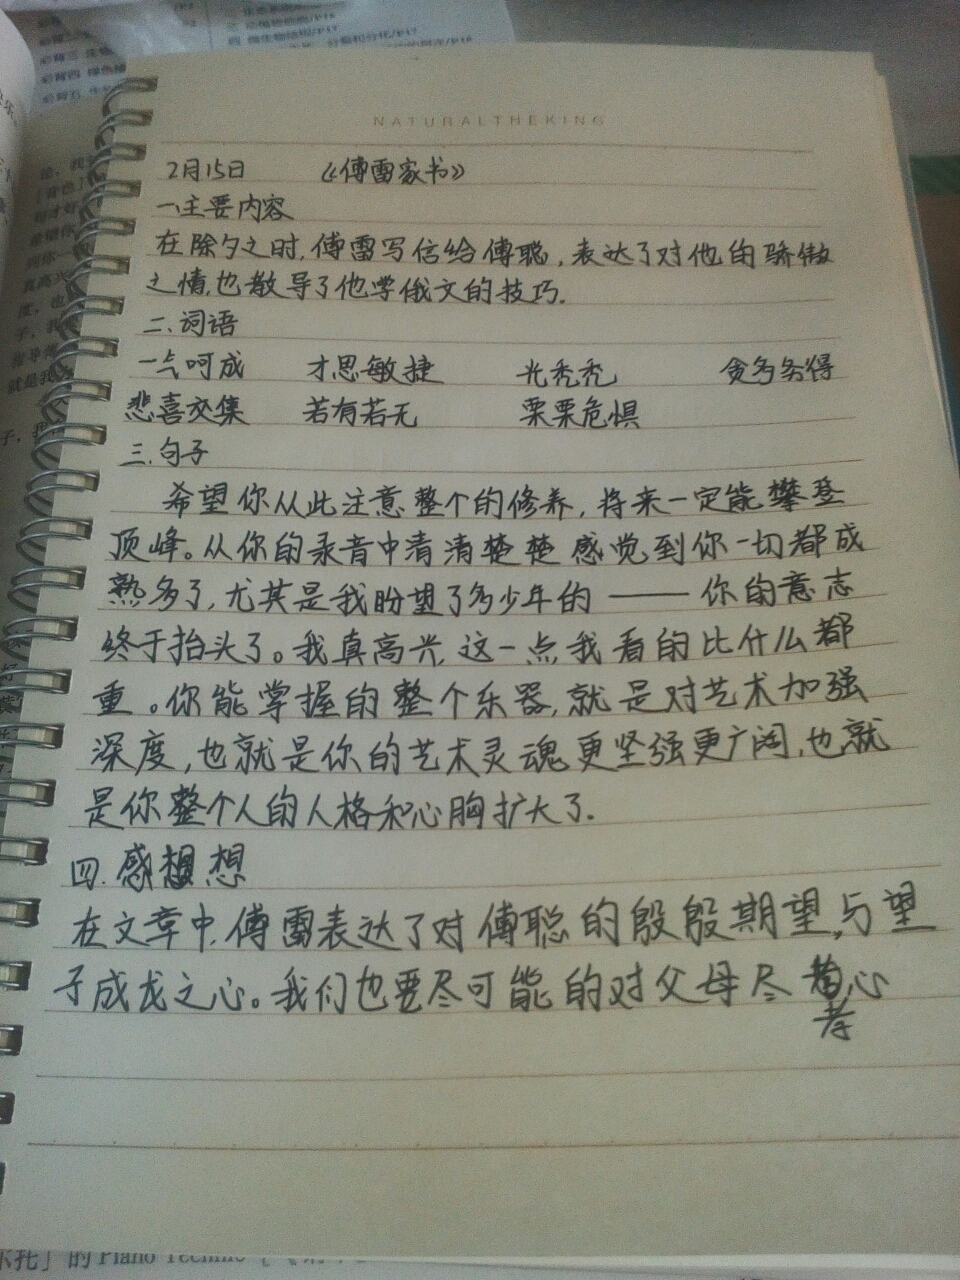 NATURALTHEKING
2月15日 《傅雷家书》
一.主要内容
在除夕之时,傅雷写信给傅聪,表达了对他的骄傲
之情,也教导了他学俄文的技巧.
二.词语
一气呵成 才思敏捷 光秃秃 贪多务得
悲喜交集 若有若无 栗栗危惧
三.句子
希望你从此注意整个的修养,将来一定能攀登
顶峰。从你的录音中清清楚楚感觉到你一切都成
熟多了,尤其是我盼望了多少年的——你的意志
终于抬头了。我真高兴,这一点我看的比什么都
重。你能掌握的整个乐器,就是对艺术加强
深度,也就是你的艺术灵魂更坚强更广阔,也就
是你整个人的人格和心胸扩大了.
四.感想
在文章中,傅雷表达了对傅聪的殷殷期望,与望
子成龙之心。我们也要尽可能的对父母尽孝心